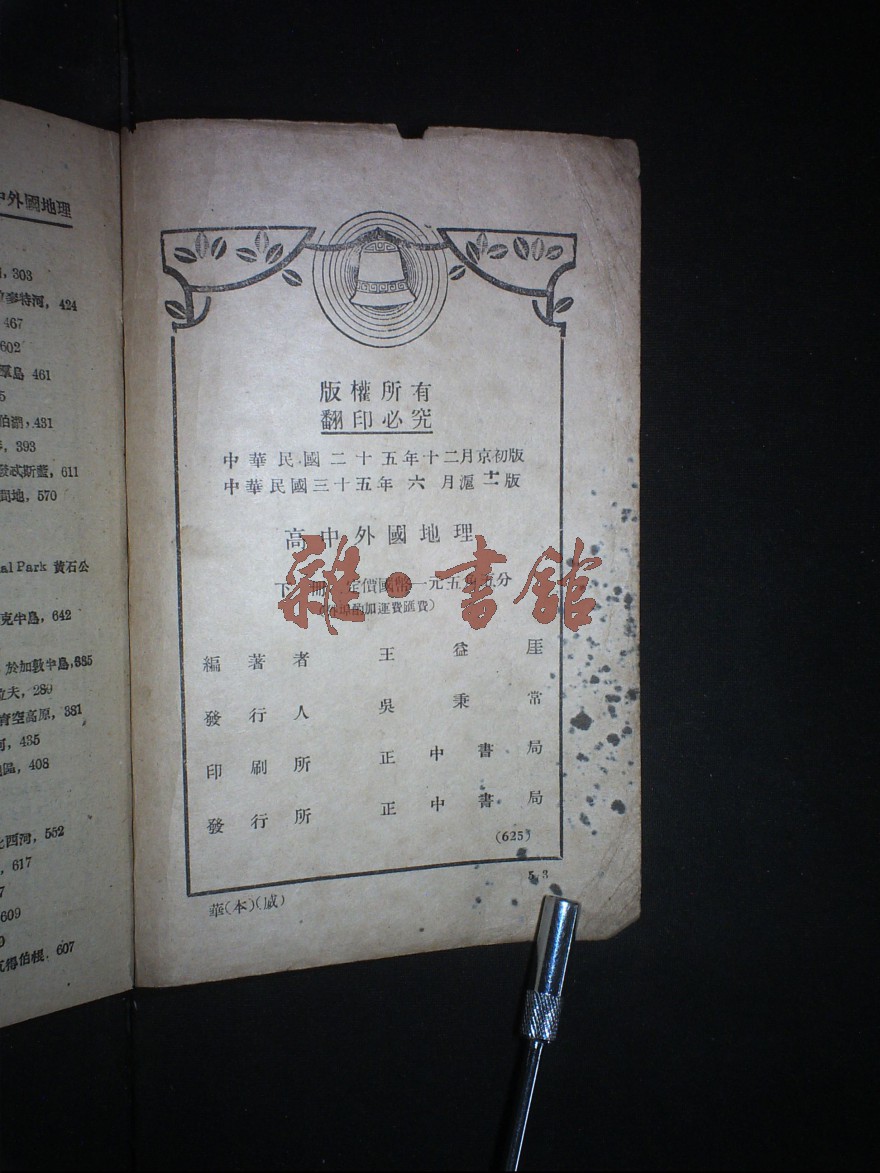 中外國地理
303
424
467
602
461
5
431
393
611
570
al Park 黃石公
克半島, 642
於加敦半島, 685
289
381
435
408
西河, 552
617
7
609
607
版權所有
翻印必究
中華民國二十五年十二月京初版
中華民國三十五年六月滬十一版
高中外國地理
下冊 定價國幣一元五角五分
(外埠酌加運費匯費)
雜·書館
編著者 王益厓
發行人 吳秉常
印刷所 正中書局
發行所 正中書局
(625)
5.3
華(本)(威)